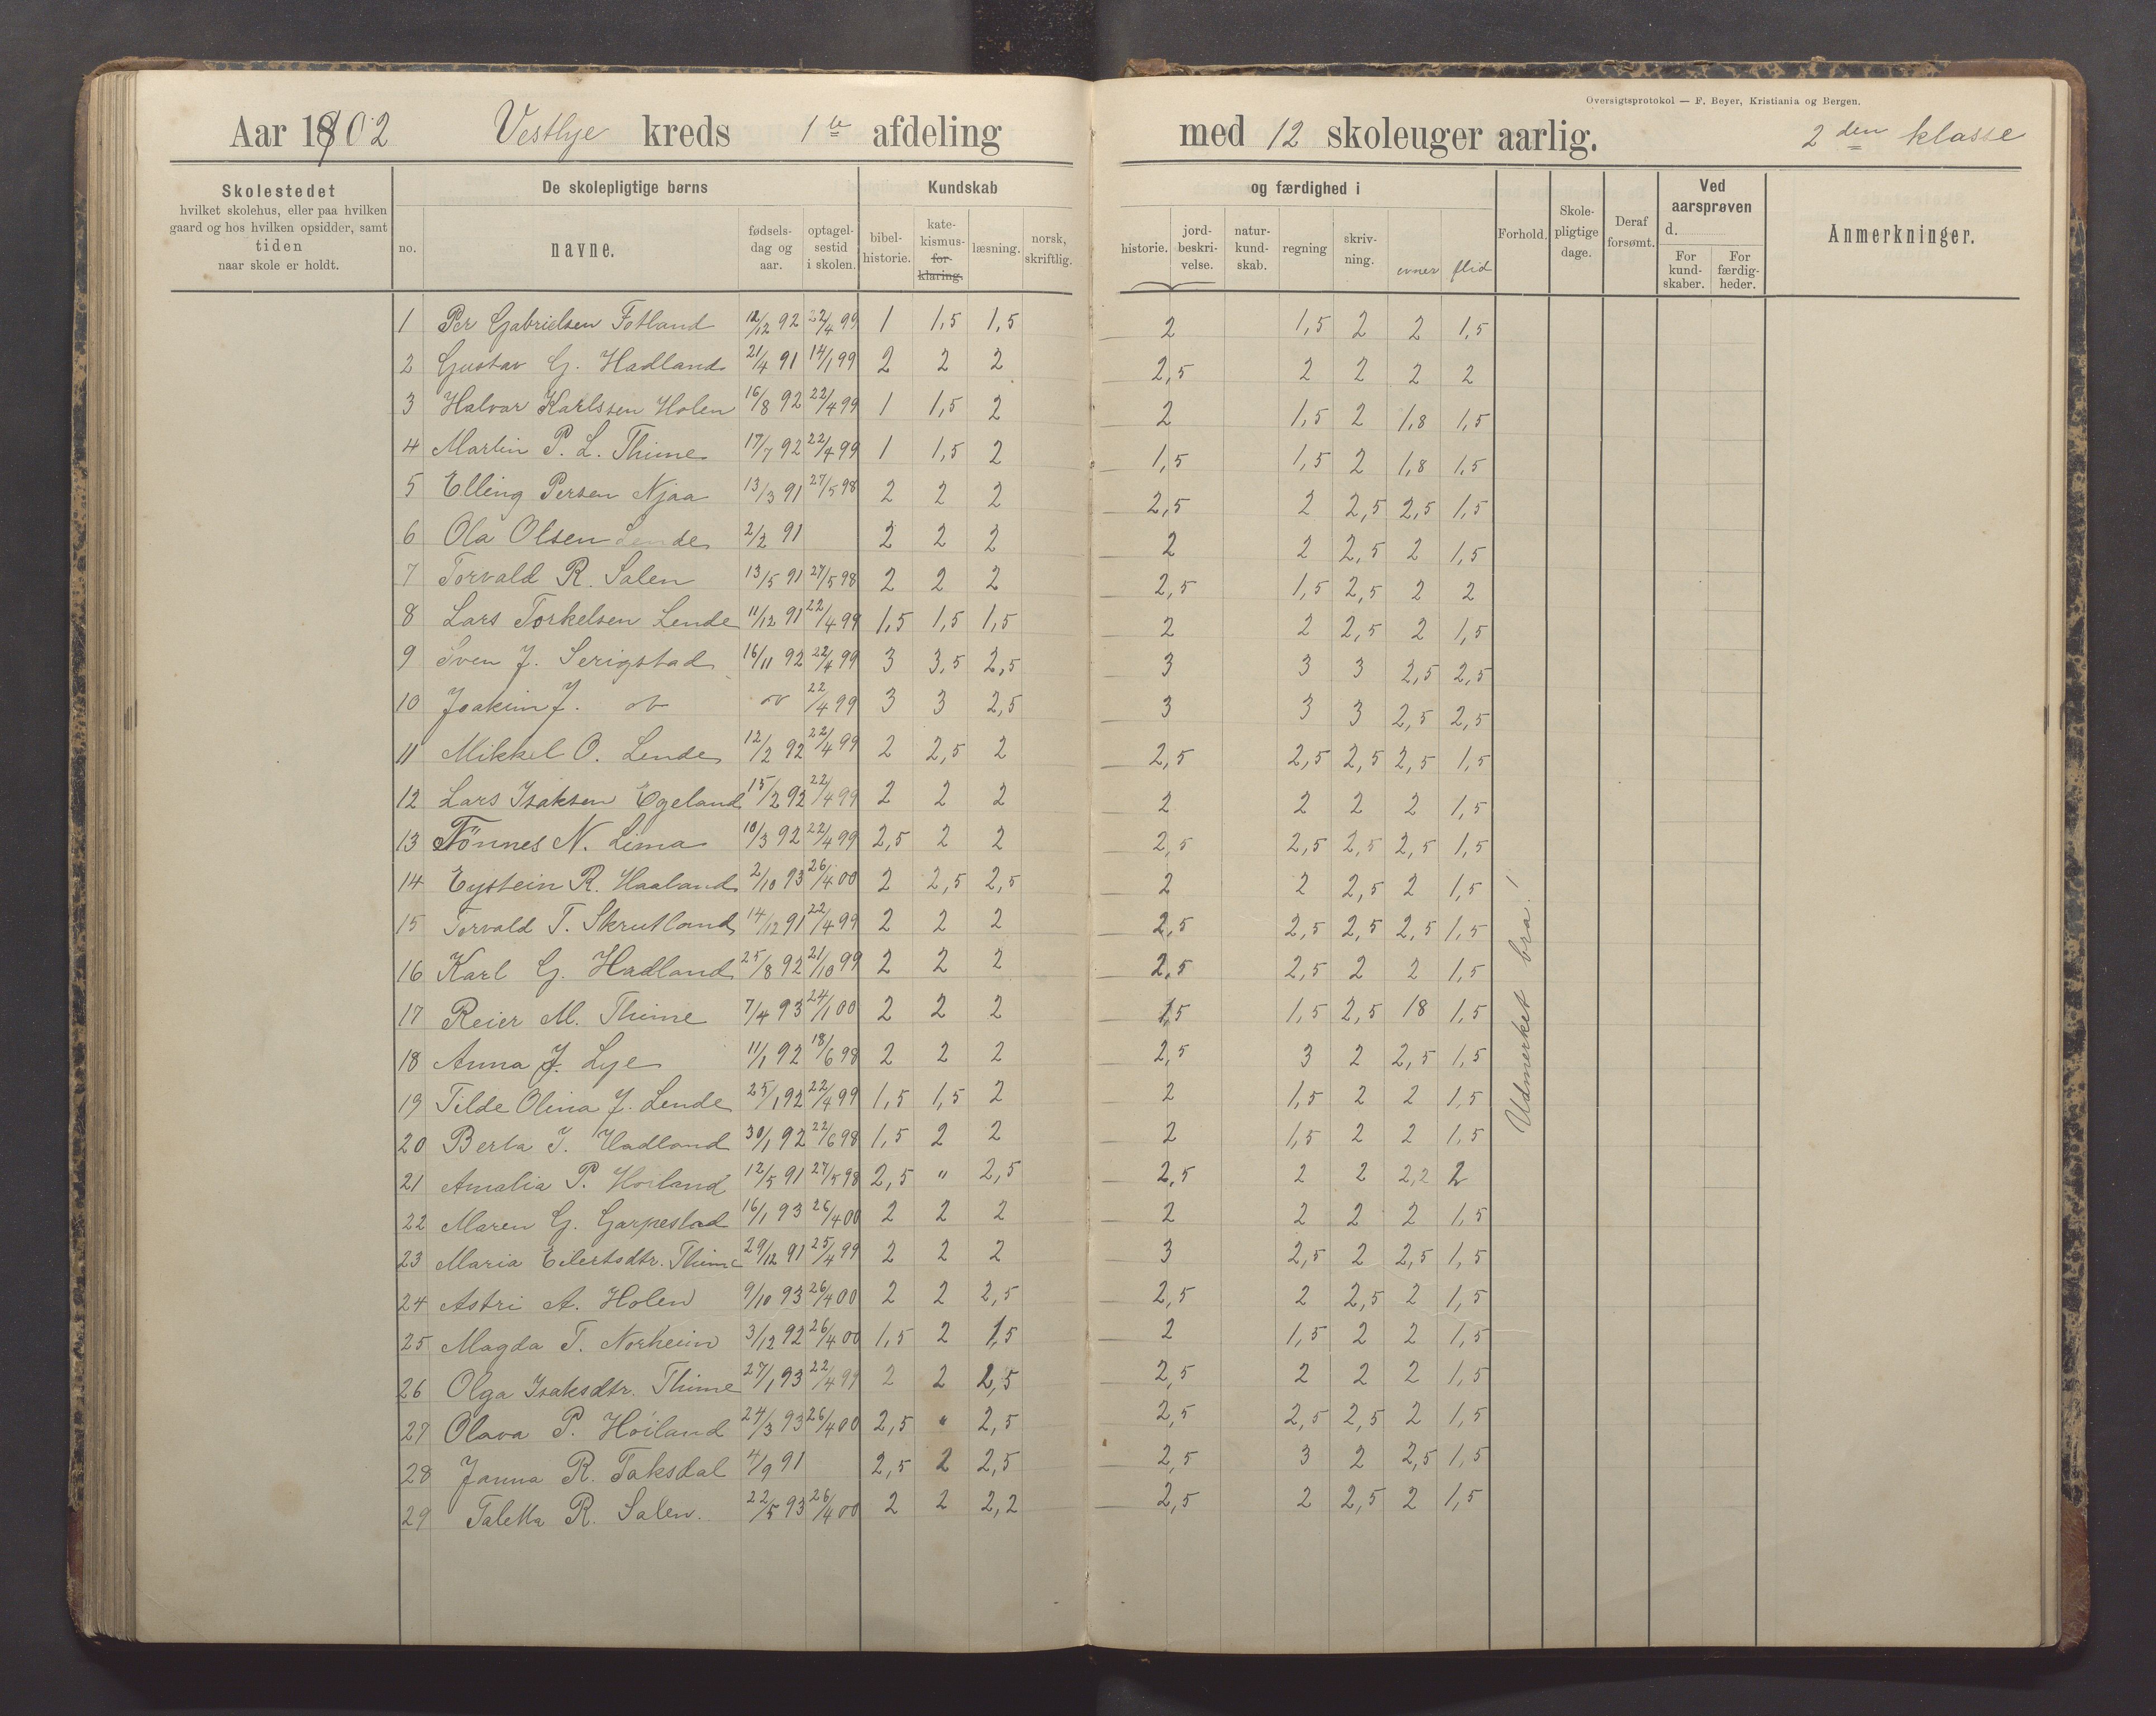 Oversigtsprotokol — F. Beyer, Kristiania og Bergen.
Aar 1902 Vestlye kreds 1ste afdeling med 12 skoleuger aarlig. 2den klasse
Skolestedet hvilket skolehus, eller paa hvilken gaard og hos hvilken opsidder, samt tiden naar skole er holdt.
De skolepligtige børns
no. navne. fødsels-dag og aar. optagel-sestid i skolen.
Kundskab og færdighed i
bibel-historie. kate-kismus-for-klaring. læsning. norsk, skriftlig. historie. jord-beskri-velse. natur-kund-skab. regning skriv-ning. evner flid
Forhold. Skole-pligtige dage. Deraf forsømt.
Ved aarsprøven d.
For kund-skaber. For færdig-heder.
Anmerkninger.
1 Per Gabrielsen Fotland 12/12 92 22/4 99 1 1,5 1,5 2 1,5 2 2 1,5
2 Gustav G. Hadland 21/4 91 14/1 99 2 2 2 2,5 2 2 2 2
3 Halvar Karlssen Holen 16/8 92 22/4 99 1 1,5 2 2 1,5 2 1,8 1,5
4 Martin P. L. Thime 17/7 92 22/4 99 1 1,5 2 1,5 1,5 2 1,8 1,5
5 Elling Persen Njaa 13/3 91 27/5 98 2 2 2 2,5 2 2,5 2,5 1,5
6 Ola Olsen Lende 2/2 91 2 2 2 2 2 2,5 2 1,5
7 Torvald R. Salen 13/5 91 27/5 98 2 2 2 2,5 1,5 2,5 2 2
8 Lars Torkelsen Lende 11/12 91 22/4 99 1,5 1,5 1,5 2 2 2,5 2 1,5
9 Sven J. Serigstad 16/11 92 22/4 99 3 3,5 2,5 3 3 3 2,5 2,5
10 Joakim J. 22/4 99 3 3 2,5 3 3 3 2,5 2,5
11 Mikkel O. Lende 12/2 92 22/4 99 2 2,5 2 2,5 2,5 2,5 2,5 1,5
12 Lars Isaksen Egeland 15/2 92 22/4 99 2 2 2 2 2 2 2 1,5
13 Tönnes N. Lima 10/3 92 22/4 99 2,5 2 2 2,5 2,5 2,5 2,5 1,5
14 Eystein R. Haaland 2/10 93 26/4 00 2 2,5 2,5 2 2 2,5 2 1,5
15 Torvald T. Skrutland 14/12 91 22/4 99 2 2 2 2,5 2,5 2,5 2,5 1,5
16 Karl G. Hadland 25/8 92 21/10 99 2 2 2 2,5 2,5 2 2 1,5
17 Reier M. Thime 7/4 93 24/1 00 2 2 2 1,5 1,5 2,5 18 1,5
18 Anna J. Lye 11/1 92 18/6 98 2 2 2 2,5 3 2 2,5 1,5
19 Tilde Olina J. Lende 25/1 92 22/4 99 1,5 1,5 2 2 1,5 2 2 1,5
20 Berta J. Hadland 30/1 92 22/6 98 1,5 2 2 2 1,5 2 2 1,5
21 Amalia P. Hoiland 12/5 91 27/5 98 2,5 " 2,5 2,5 2 2 2,2 2
22 Maren G. Garpestad 16/1 93 26/4 00 2 2 2 2 2 2 2 1,5
23 Maria Eilertsdtr. Thime 29/12 91 25/4 99 2 2 2 3 2,5 2 2,5 1,5
24 Astri A. Holen 9/10 93 26/4 00 2 2 2,5 2,5 2 2,5 2 1,5
25 Magda T. Norheim 3/12 92 26/4 00 1,5 2 1,5 2 1,5 2 2 1,5
26 Olga Isaksdtr. Thime 27/1 93 22/4 99 2 2 2,5 2,5 2 2 2 1,5
27 Olava P. Höiland 24/3 93 26/4 00 2,5 " 2,5 2,5 2,5 2,5 2 1,5
28 Janna R. Taksdal 4/9 91 2,5 2 2,5 2,5 3 2 2,5 1,5
29 Taletta R. Salen. 22/5 93 26/4 00 2 2 2,2 2,5 2 2,5 2 1,5
Udmerket bra!